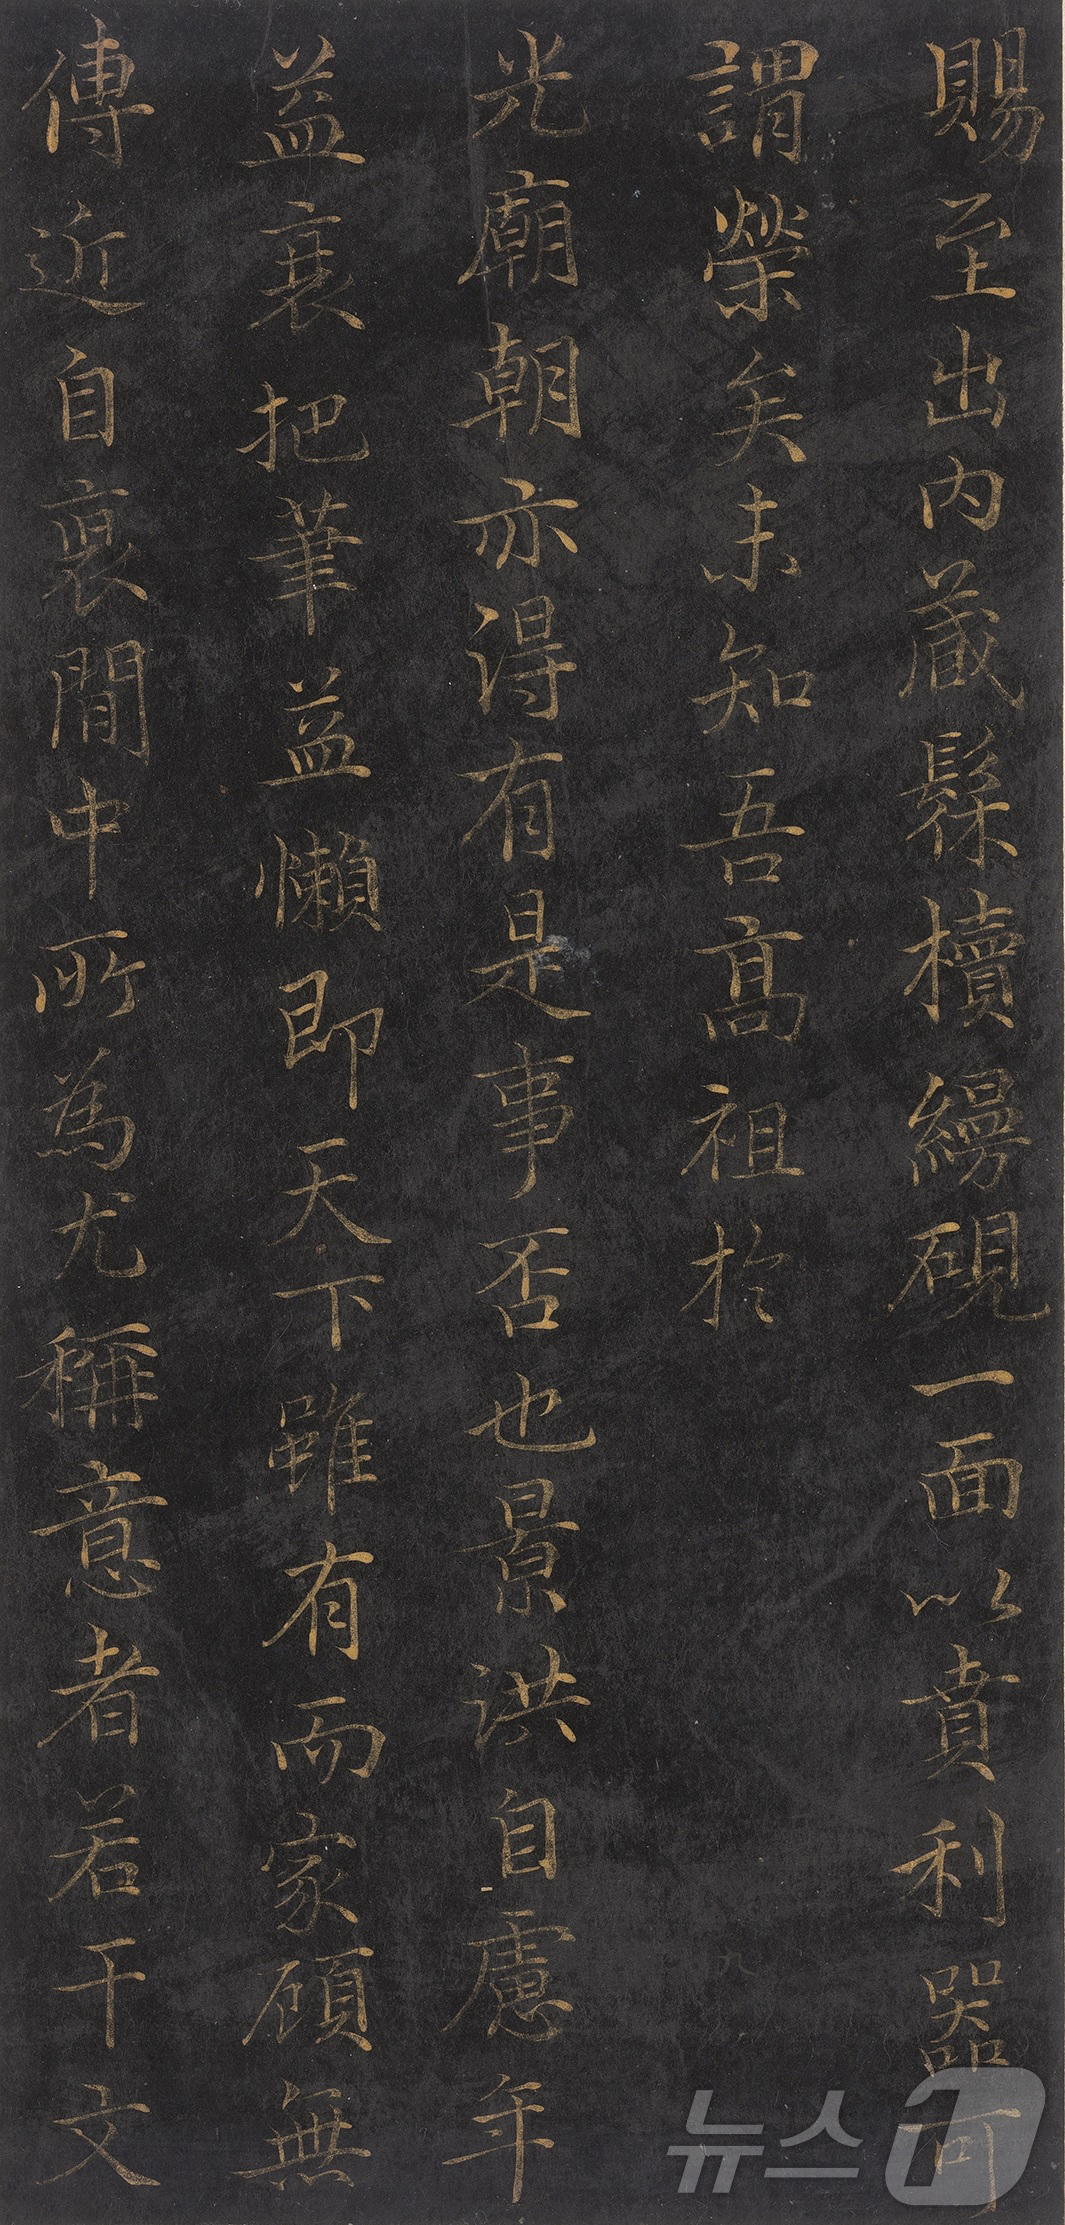 賜至出內藏髹櫝縵硯一面以賁利器可
謂榮矣未知吾高祖於
光廟朝亦得有是事否也景洪自慮年
益衰把筆益懶即天下雖有而家顧無
傳近自裒閒中所為尤稱意者若干文
뉴스1